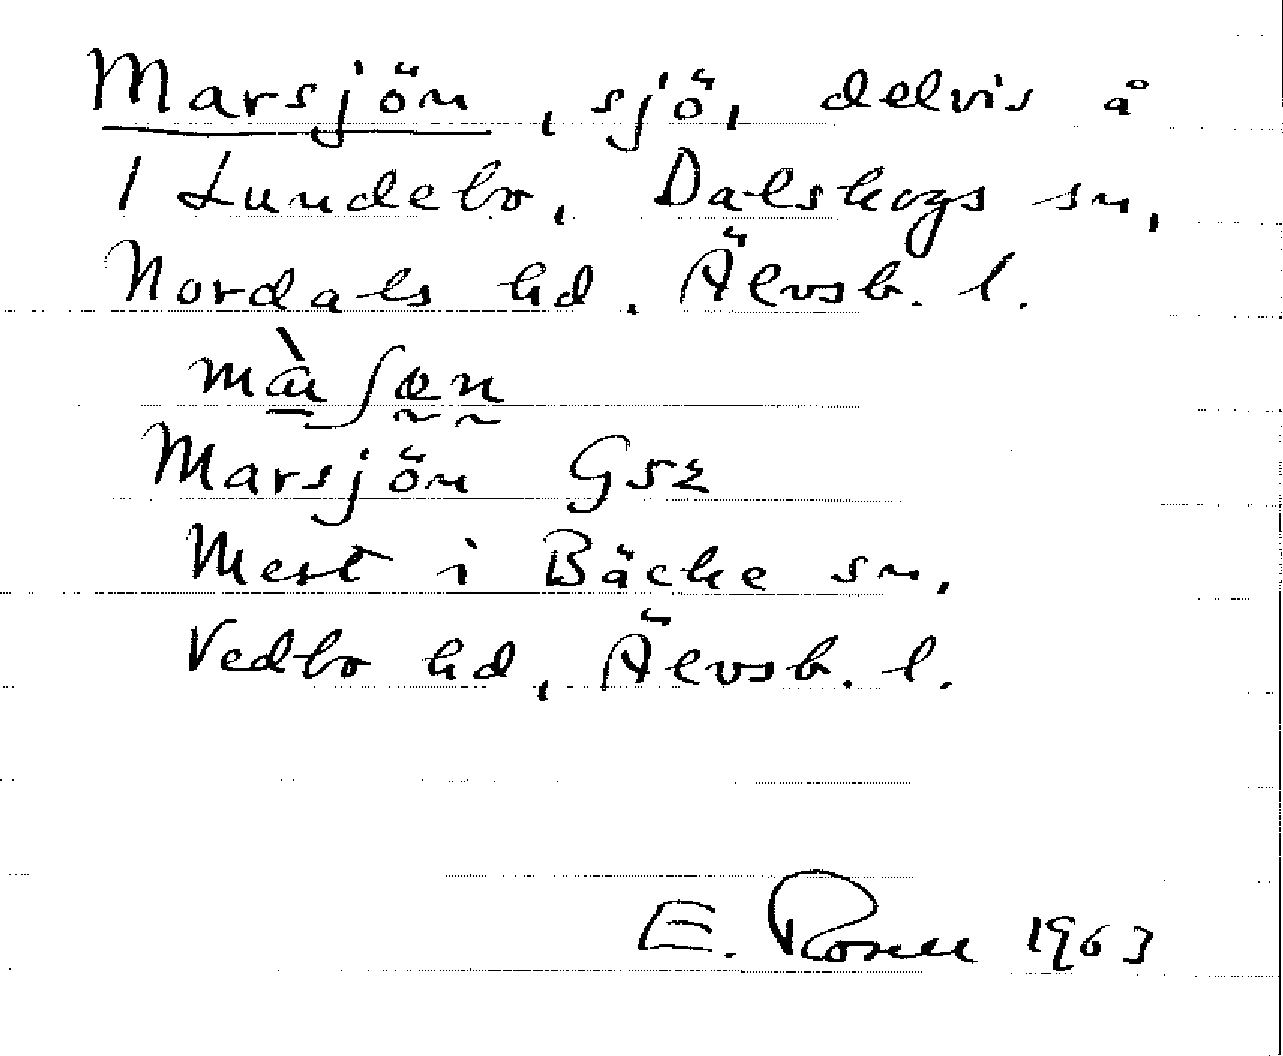 Marsjön, sjö, delvis å
1 Lundebo, Dalskogs sn,
Nordals hd. Älvsb. l.
Marsjön G52
Mest i Bäcke sn,
Vedbo hd, Älvsb. l.
E. Rosell 1963